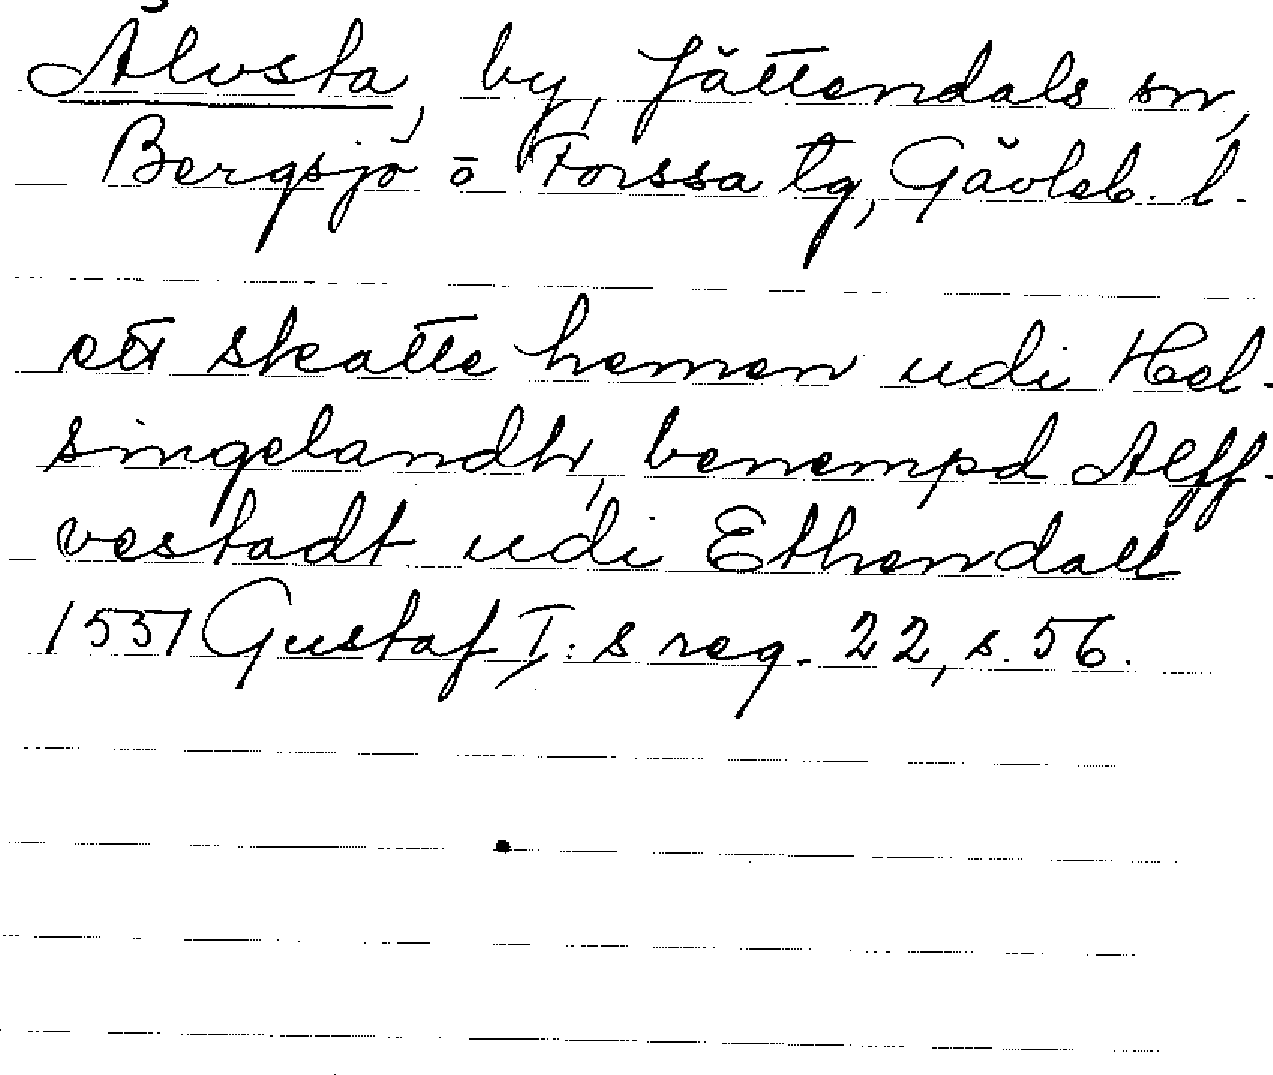 Älvsta, by, Jättendals sn,
Bergsjö o Forssa tg, Gävleb. l.
ett skatte hemen udi Hel-
singelandh, benempd Alff-
vestadt udi Ethendall
1551 Gustaf I:s reg. 22, s. 56.